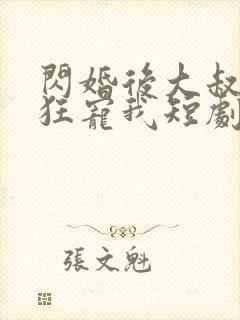 閃婚後大叔
狂寵我短劇
張文魁